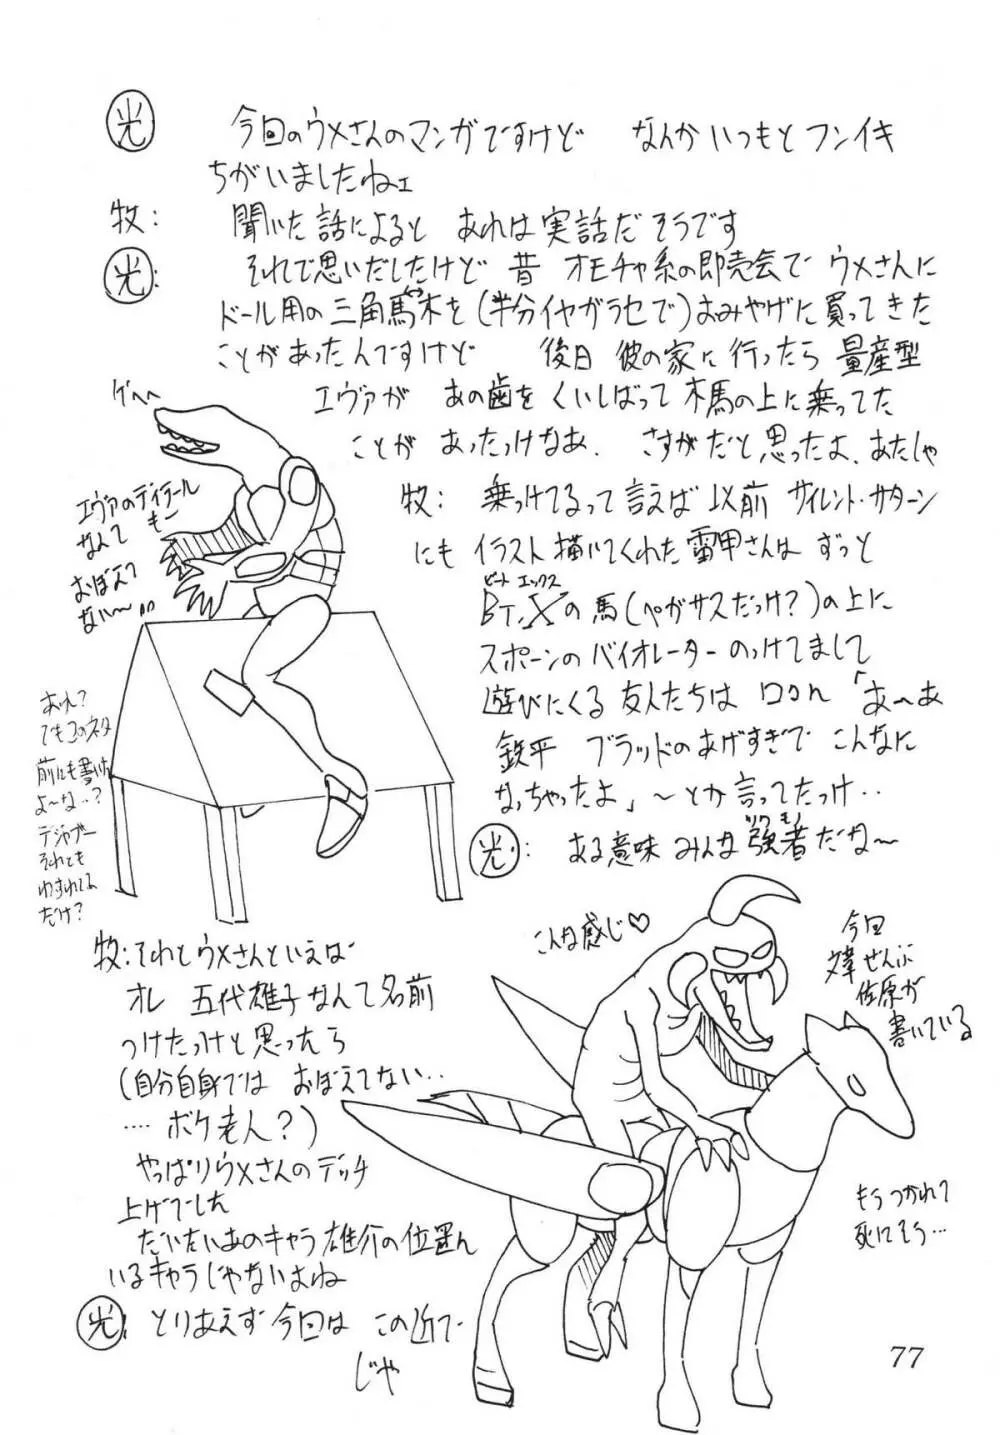 光 今回のウメさんのマンガですけど なんかいつもとフンイキ
ちがいましたねェ
牧: 聞いた話によると あれは実話だそうです
光: それで思いだしたけど 昔 オモチャ系の即売会で ウメさんに
ドール用の三角馬木を(半分イヤガラセで)おみやげに買ってきた
ことがあったんですけど 後日 彼の家に行ったら 量産型
エヴァが あの歯をくいしばって木馬の上に乗ってた
ことが あったっけなあ. さすがだと思ったよ、あたしゃ
ゲヘヘ
エヴァのディテール
なんて もー
おぼえて
ない〜
牧: 乗っけてるって言えば 以前 サイレント・サターン
にも イラスト描いてくれた雷甲さんは ずっと
ビート エックス
BT,Xの馬(ペガサスだっけ?)の上に
スポーンのバイオレーター のっけてまして
遊びにくる友人たちは 口々に「あ〜あ
鉄平 ブラッドのあげすぎで こんなに
なっちゃったよ」〜とか言ってたっけ..
光: ある意味 みんな強者だな〜
ツワモノ
あれ?
でもこのネタ
前にも書いた
よ〜な..?
デジャブー
それとも
わすれてる
だけ?
牧: それとウメさんといえば
オレ 五代雄子なんて名前
つけたっけと思ったら
(自分自身では おぼえてない..
.... ボケ老人?)
やっぱりウメさんのデッチ
上げでした
だいたいあのキャラ雄介の位置に
いるキャラじゃないよね
光: とりあえず今回は この辺で
じゃ
こんな感じ♡
今回
文章ぜんぶ
佐原が
書いている
もうつかれて
死にそう…
77